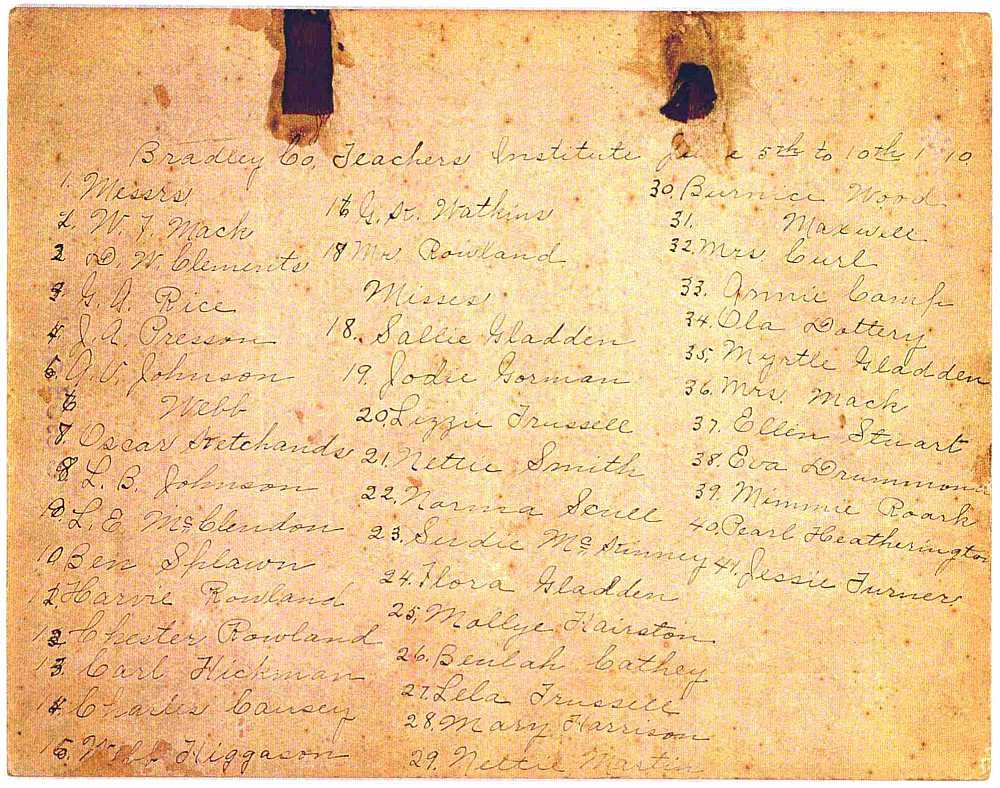 Bradley Co, Teachers Institute June 5th to 10th 1 10.
1. Messrs
2. W. F. Mack
2 D. W. Clements
3 G. A. Rice
4 J. A. Presson
5 A. V. Johnson
6 Webb
7 Oscar Ketchands
8 L. B. Johnson
10. L. E. McClendon
10 Ben Splawn
12. Harvie Rowland
12 Chester Rowland
13 Carl Hickman
14. Charles Causey
15. Webb Higgason
16 G. W. Watkins
18 Mr Rowland
Misses
18. Sallie Gladden
19. Jodie Gorman
20. Lizzie Trussell
21. Nettie Smith
22. Norma Scull
23. Surdie McKinney
24. Flora Gladden
25. Mollye Hairston
26. Beulah Cathey
27. Lela Trussell
28. Mary Harrison
29. Nettie Martin
30. Burnice Wood
31. Maxwell
32. Mrs Curl
33. Annie Camp
34. Ola Dottery
35. Myrtle Gladden
36. Mrs. Mack
37. Ellen Stuart
38. Eva Drummond
39. Mimmie Roark
40. Pearl Heatherington
41. Jessie Turner